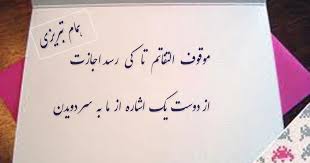 همام تبریزی
موقوف التفاتم تا کی رسد اجازت
از دوست یک اشاره از ما به سر دویدن